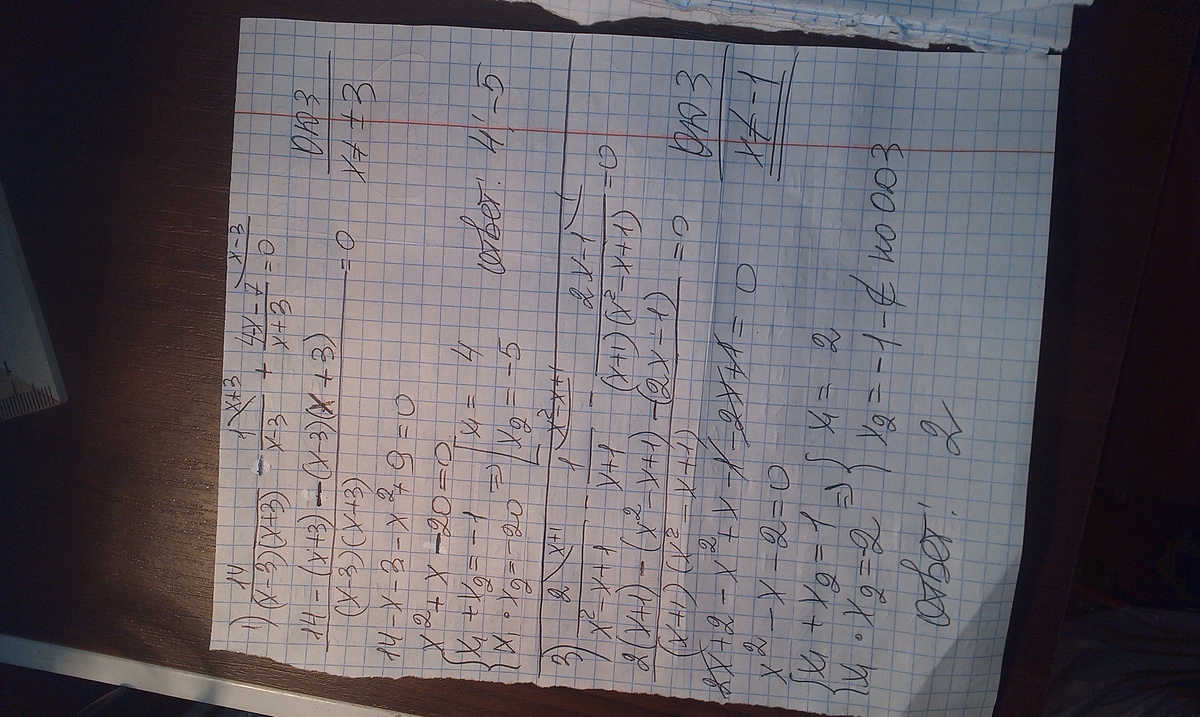 1) 14/((x-3)(x+3)) - 1/(x-3) \x+3 + (4x-7)/(x+3) \x-3 =0
ОДЗ
(14-(x+3)-(x-3)(x+3))/((x-3)(x+3)) =0
x≠±3
14-x-3-x²+9=0
x²+x-20=0
{x₁+x₂=-1
{x₁·x₂=-20 => [x₁=4
[x₂=-5
Ответ: 4; -5
3) 2/(x²-x+1) \x+1 - 1/(x+1) \x²-x+1 - (2x-1)/((x+1)(x²-x+1)) \1 =0
(2(x+1)-(x²-x+1)-(2x-1))/((x+1)(x²-x+1)) =0
ОДЗ
x≠-1
2x+2-x²+x-1-2x+1=0
x²-x-2=0
{x₁+x₂=1
{x₁·x₂=-2 => {x₁=2
{x₂=-1-∉ по ОДЗ
Ответ: 2